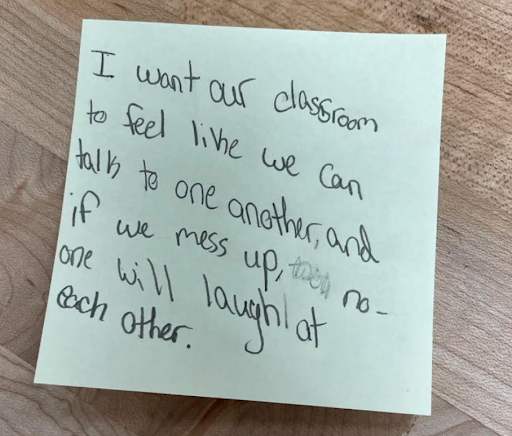 I want our classroom
to feel like we can
talk to one another, and
if we mess up, no-
one will laugh at
each other.